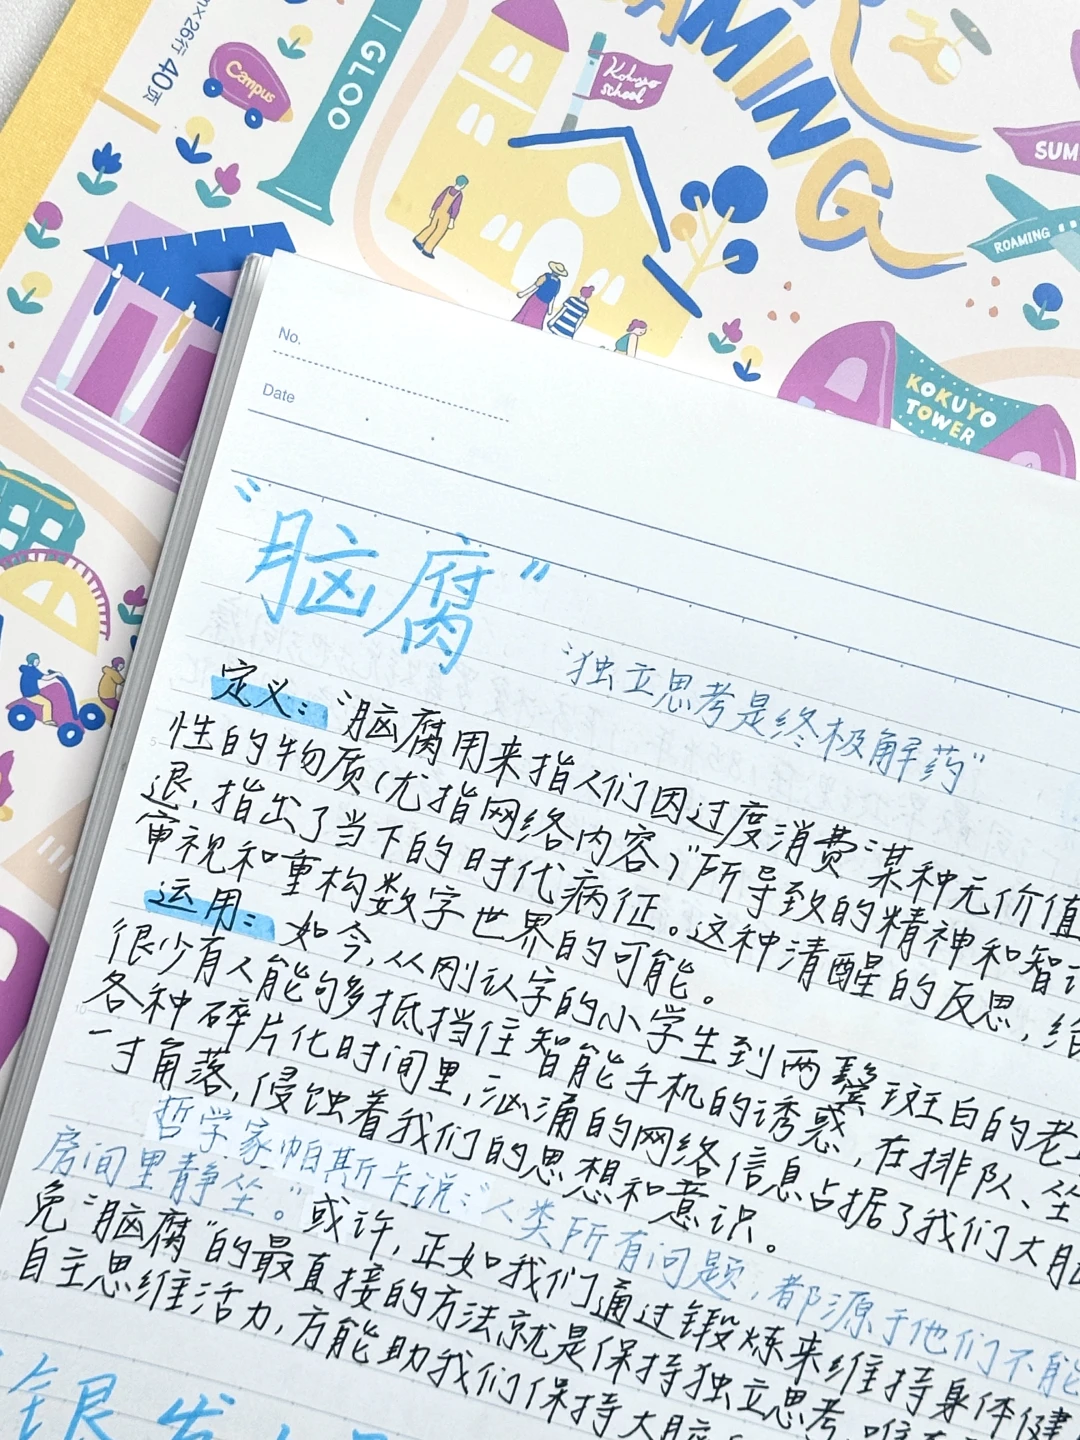 m×26行 40页
Campus
GLOO
Kokuyo
school
AMING
SUM
ROAMING
KOKUYO
TOWER
No.
Date
“脑腐”
“独立思考是终极解药”
定义：“脑腐用来指人们因过度消费“某种无价值
性的物质(尤指网络内容)”所导致的精神和智
退，指出了当下的时代病征。这种清醒的反思，给
审视和重构数字世界的可能。
运用：如今，从刚认字的小学生到两鬓斑白的老
很少有人能够抵挡住智能手机的诱惑，在排队、坐
各种碎片化时间里，汹涌的网络信息占据了我们大脑
一寸角落，侵蚀着我们的思想和意识。
哲学家帕斯卡说：“人类所有问题，都源于他们不能
房间里静坐。”或许，正如我们通过锻炼来维持身体健
免“脑腐”的最直接的方法就是保持独立思考，唯有
自主思维活力，方能助我们保持大脑
银发